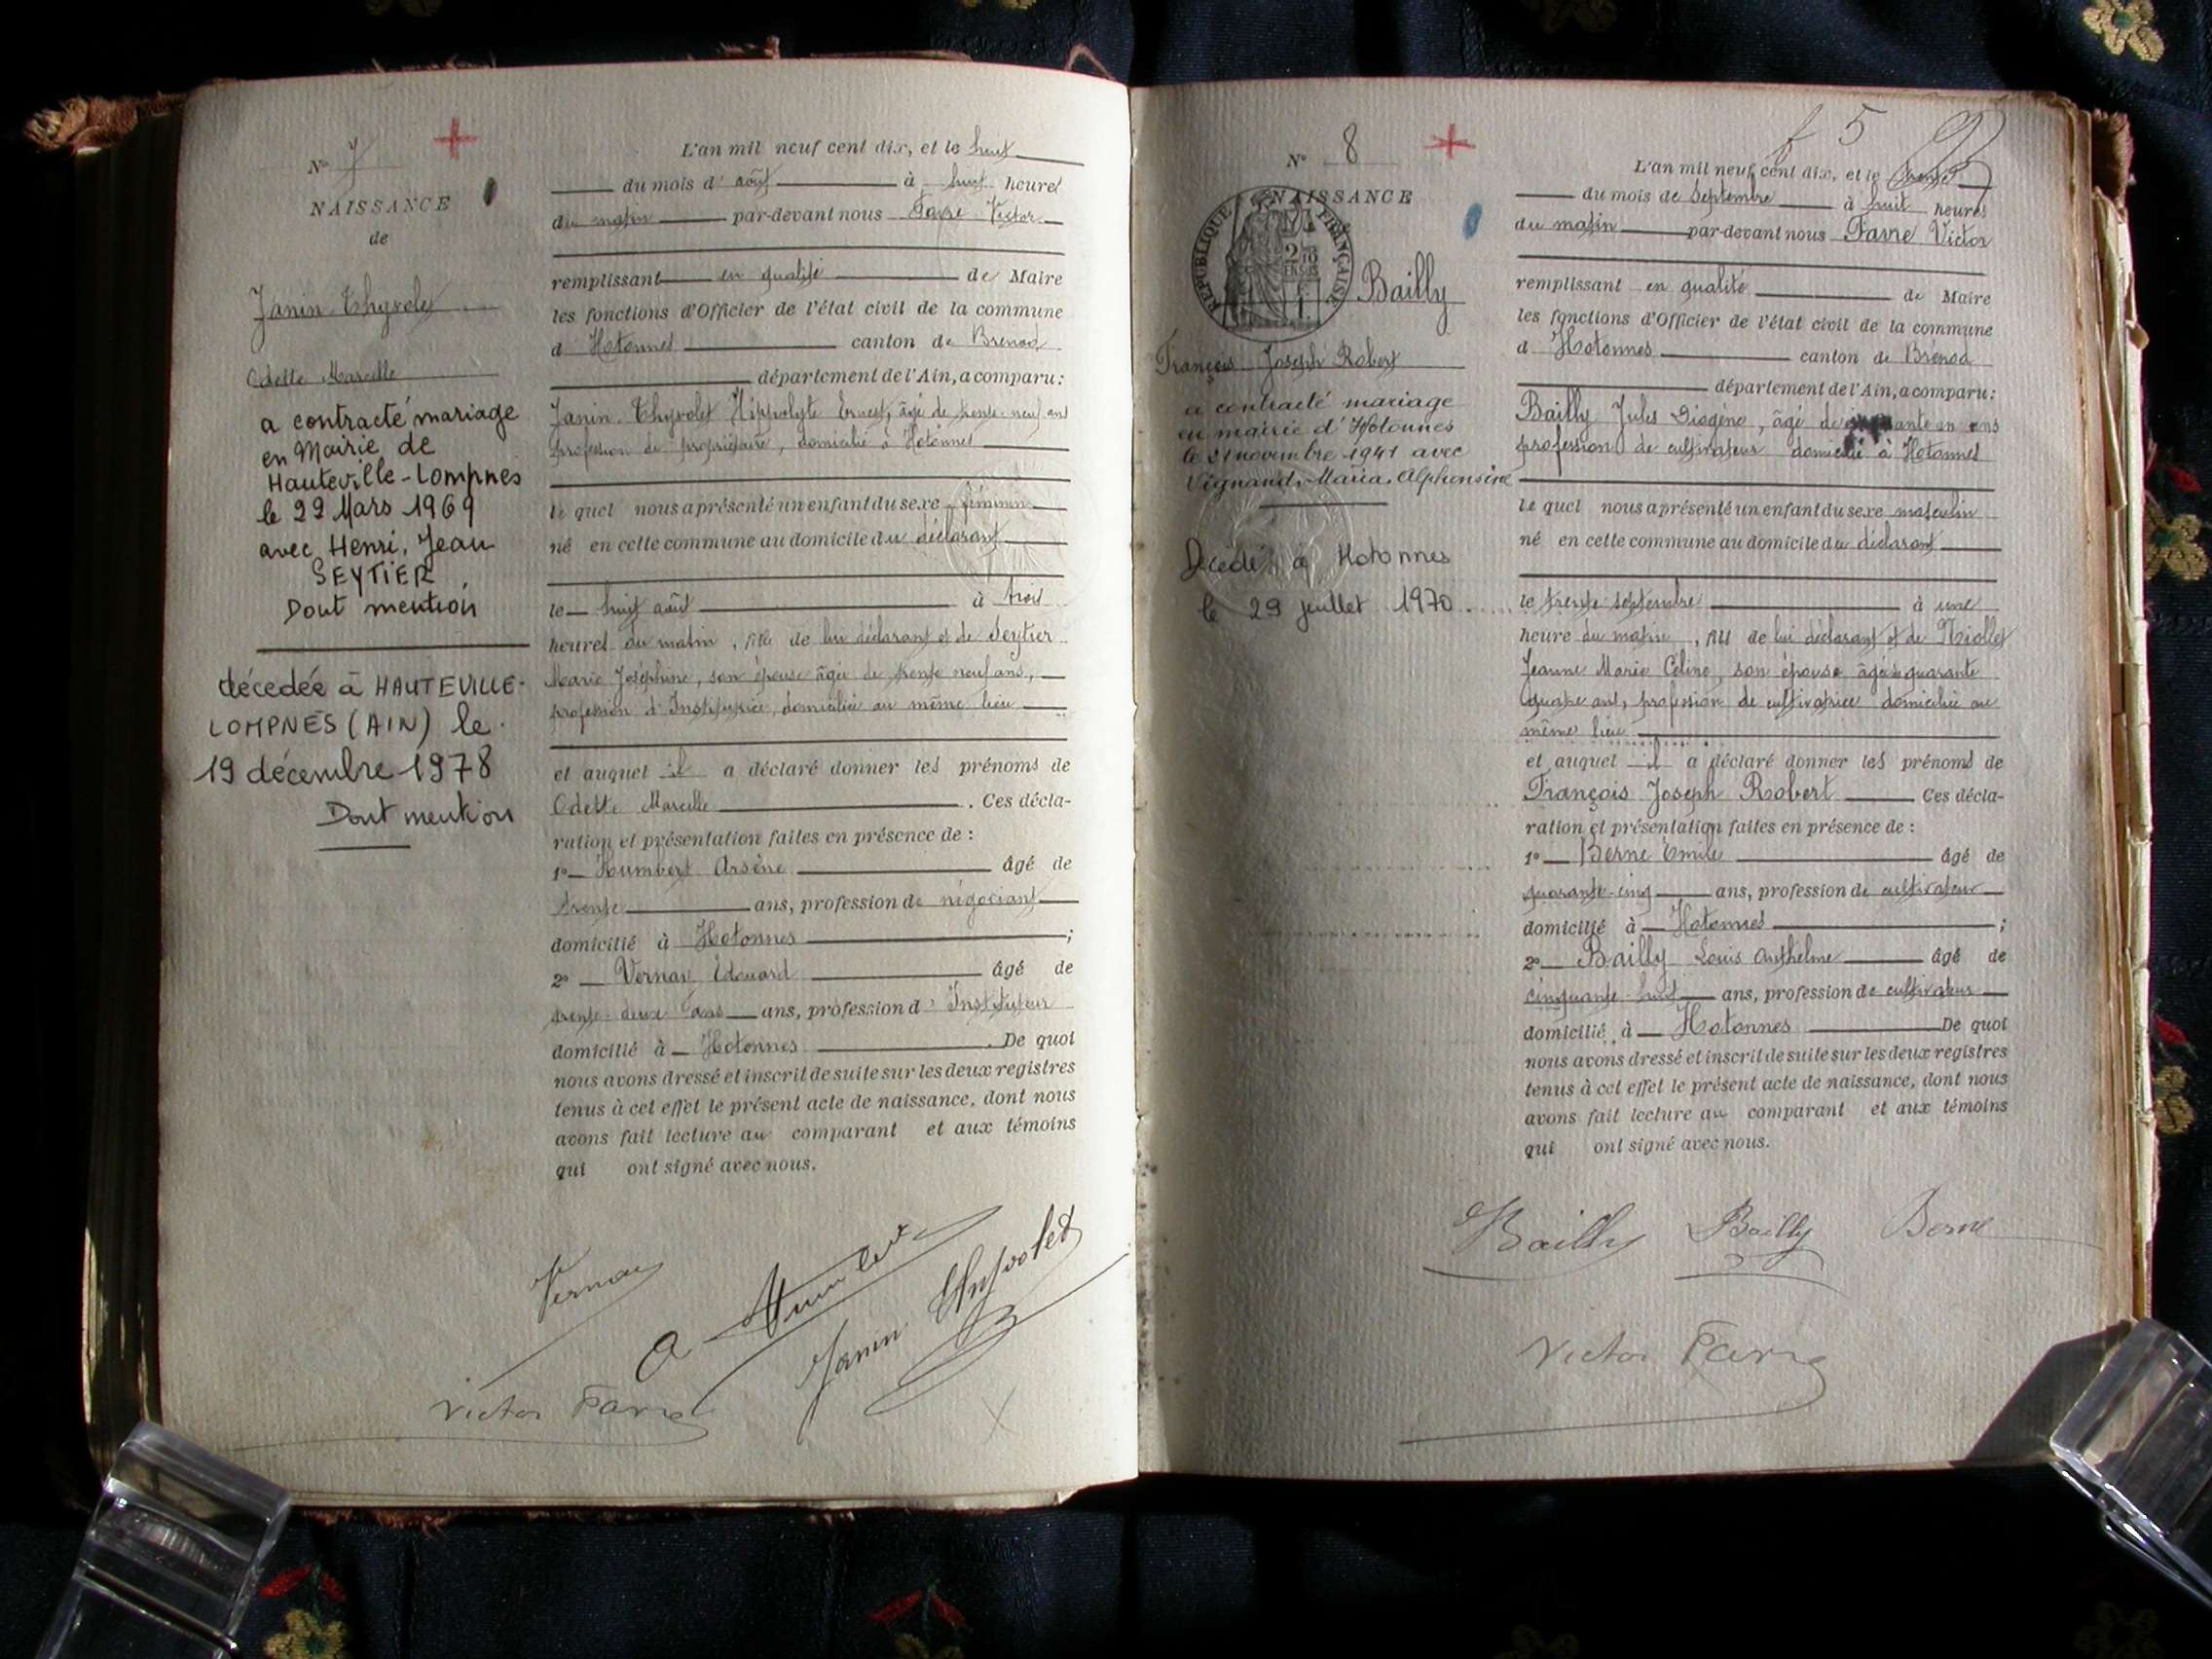 N° 7
NAISSANCE
de
Janin-Thyvolet
Odette Marcelle
a contracté mariage
en Mairie de
Hauteville-Lompnes
le 22 Mars 1969
avec Henri, Jean
SEYTIER
Dont mention
décedée à HAUTEVILLE-
LOMPNES (AIN) le
19 décembre 1978
Dont mention
L'an mil neuf cent dix, et le huit
du mois d'août à huit heures
du matin par-devant nous Favre Victor
remplissant en qualité de Maire
les fonctions d'Officier de l'état civil de la commune
d'Hotonnes canton de Brenod
département de l'Ain, a comparu :
Janin-Thyvolet Hippolyte Ernest, âgé de trente-neuf ans
profession de propriétaire, domicilié à Hotonnes
le quel nous a présenté un enfant du sexe féminin
né en cette commune au domicile du déclarant
le huit août à trois
heures du matin, fille de lui déclarant et de Seytier
Marie Joséphine, son épouse âgée de trente neuf ans,
profession d'Institutrice, domiciliée au même lieu
et auquel il a déclaré donner les prénoms de
Odette Marcelle. Ces décla-
ration et présentation faites en présence de :
1° Humbert Arsène âgé de
trente ans, profession de négociant
domicilié à Hotonnes ;
2° Vernay Edouard âgé de
trente-deux ans ans, profession d'Instituteur
domicilié à Hotonnes. De quoi
nous avons dressé et inscrit de suite sur les deux registres
tenus à cet effet le présent acte de naissance, dont nous
avons fait lecture au comparant et aux témoins
qui ont signé avec nous.
Vernay
A Humbert
Janin Thyvolet
Victor Favre
f 5
N° 8
NAISSANCE
RÉPUBLIQUE FRANÇAISE
Bailly
François Joseph Robert
a contracté mariage
en mairie d'Hotonnes
le 21 novembre 1941 avec
Vignand, Maria, Alphonsine
Décédé à Hotonnes
le 29 juillet 1970
L'an mil neuf cent dix, et le trente
du mois de Septembre à huit heures
du matin par-devant nous Favre Victor
remplissant en qualité de Maire
les fonctions d'Officier de l'état civil de la commune
d'Hotonnes canton de Brénod
département de l'Ain, a comparu :
Bailly Jules Diogène, âgé de ans
profession de cultivateur domicilié à Hotonnes
le quel nous a présenté un enfant du sexe masculin
né en cette commune au domicile du déclarant
le trente septembre à une
heure du matin, fils de lui déclarant et de Niollet
Jeanne Marie Céline, son épouse âgée de quarante
quatre ans, profession de cultivatrice domiciliée au
même lieu
et auquel il a déclaré donner les prénoms de
François Joseph Robert Ces décla-
ration et présentation faites en présence de :
1° Berne Emile âgé de
quarante-cinq ans, profession de cultivateur
domicilié à Hotonnes ;
2° Bailly Louis Anthelme âgé de
cinquante-huit ans, profession de cultivateur
domicilié à Hotonnes De quoi
nous avons dressé et inscrit de suite sur les deux registres
tenus à cet effet le présent acte de naissance, dont nous
avons fait lecture au comparant et aux témoins
qui ont signé avec nous.
Bailly Bailly Berne
Victor Favre